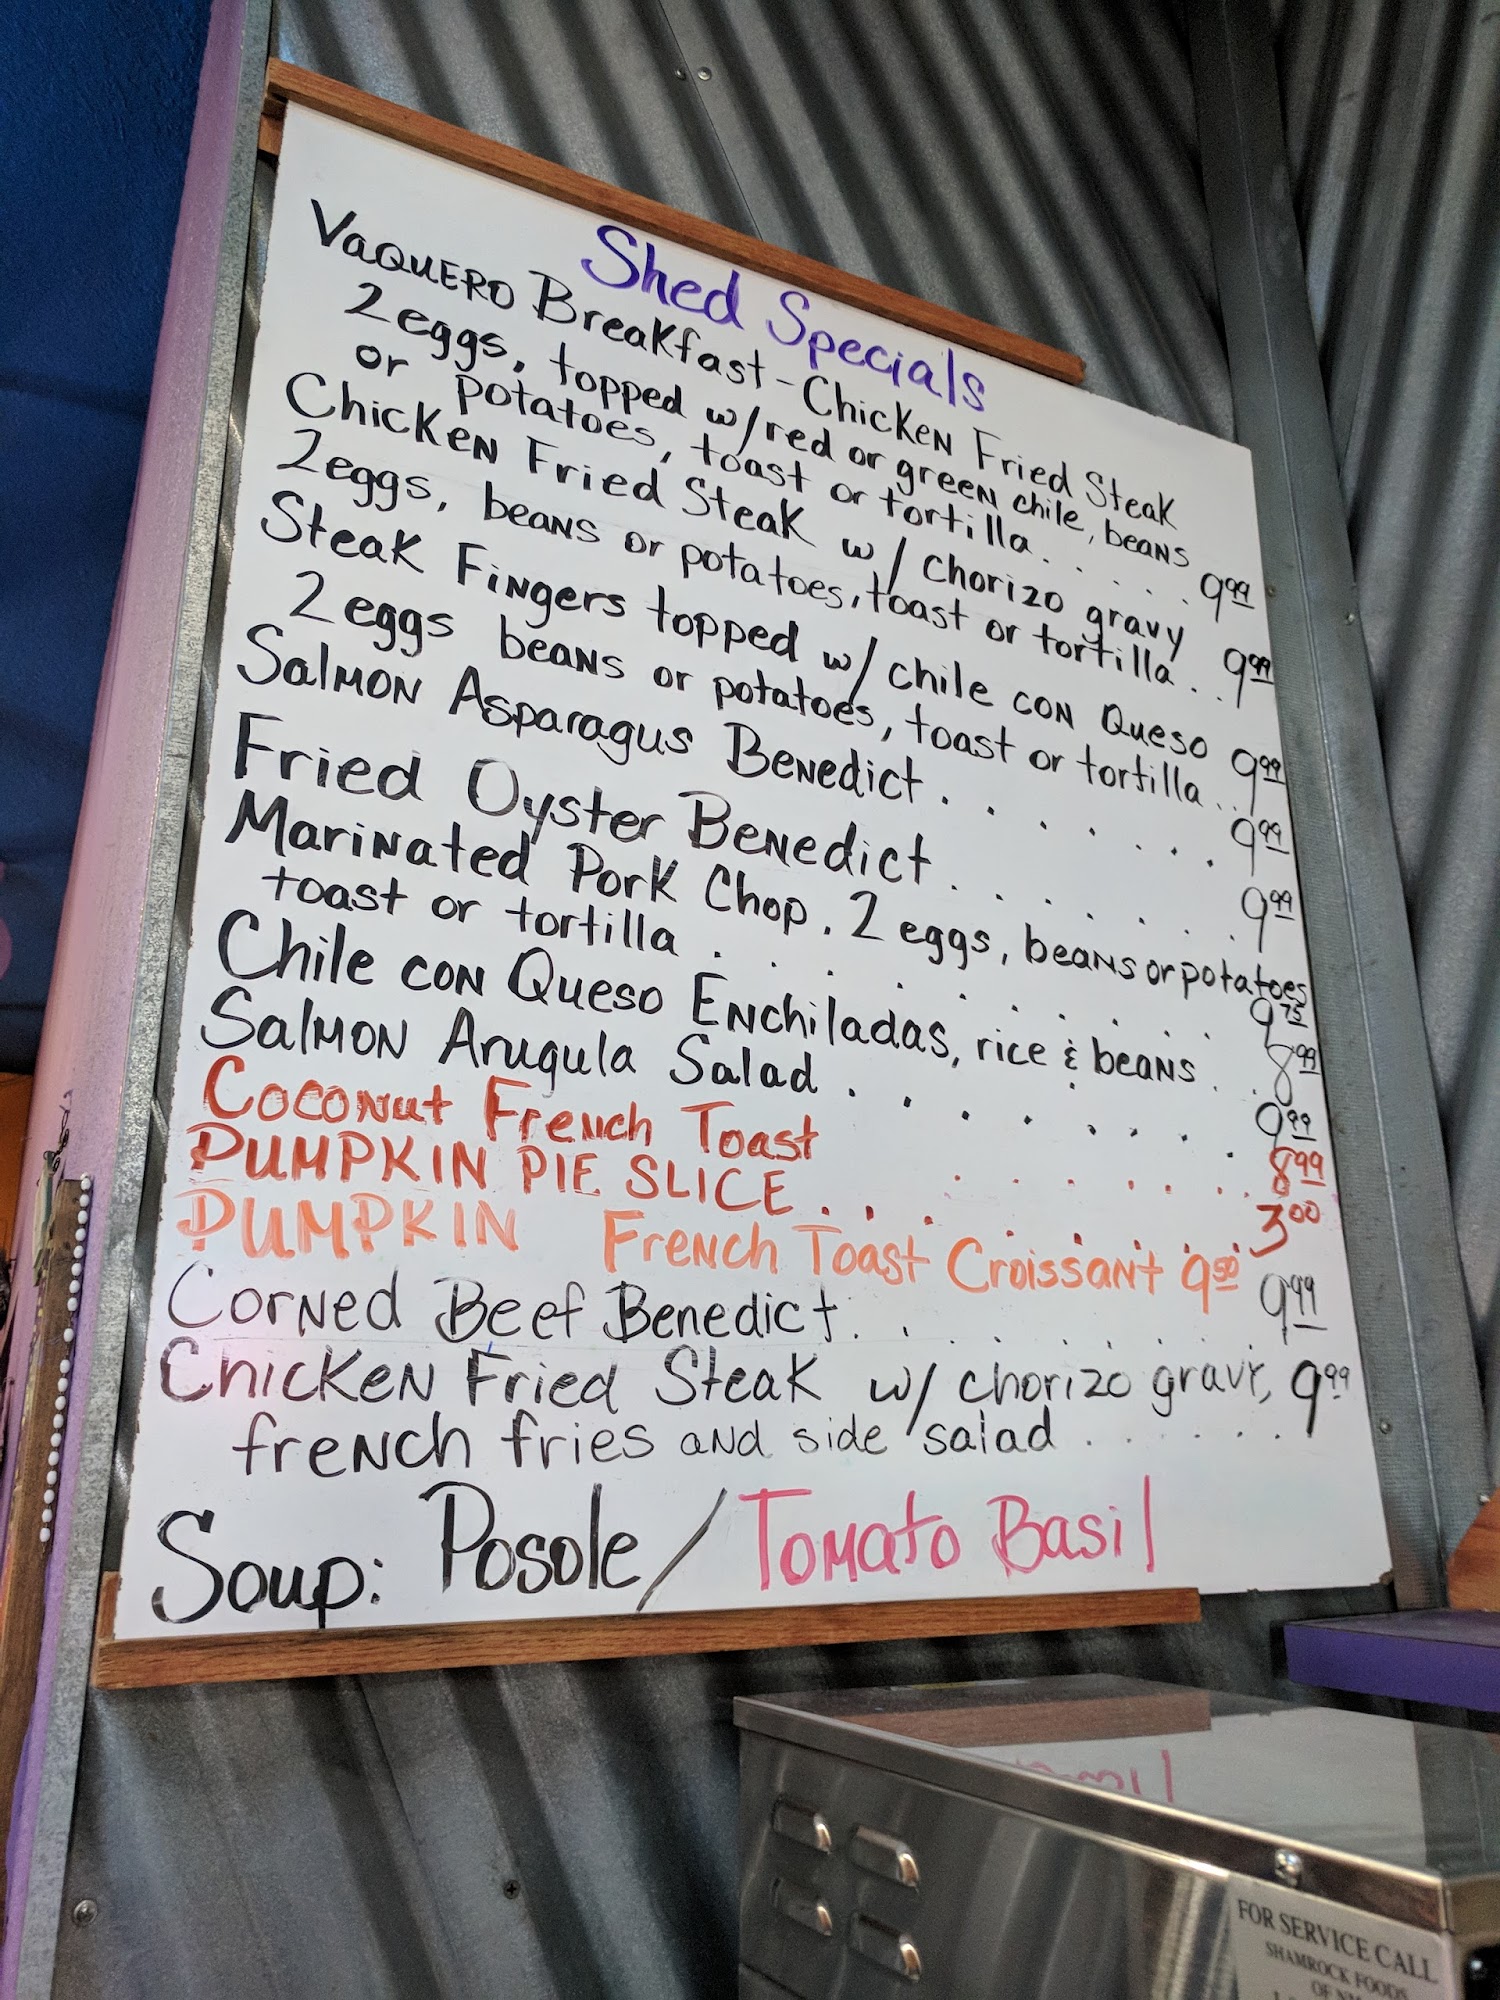 Shed Specials
Vaquero Breakfast - Chicken Fried Steak
2 eggs, topped w/ red or green chile, beans
or potatoes, toast or tortilla . . . . . . 9.99
Chicken Fried Steak w/ chorizo gravy
2 eggs, beans or potatoes, toast or tortilla . . 9.99
Steak Fingers topped w/ chile con Queso
2 eggs beans or potatoes, toast or tortilla . . 9.99
Salmon Asparagus Benedict . . . . . . . . 9.99
Fried Oyster Benedict . . . . . . . . 9.99
Marinated Pork Chop. 2 eggs, beans or potatoes
toast or tortilla . . . . . . . . . 9.75
Chile con Queso Enchiladas, rice & beans . . 8.99
Salmon Arugula Salad . . . . . . . . . 9.99
Coconut French Toast . . . . . . . 8.99
PUMPKIN PIE SLICE . . . . . . . . 3.00
PUMPKIN French Toast Croissant 9.50
Corned Beef Benedict . . . . . . . . 9.99
Chicken Fried Steak w/ chorizo gravy, 9.99
french fries and side salad . . . . . .
Soup: Posole / Tomato Basil
FOR SERVICE CALL
SHAMROCK FOODS